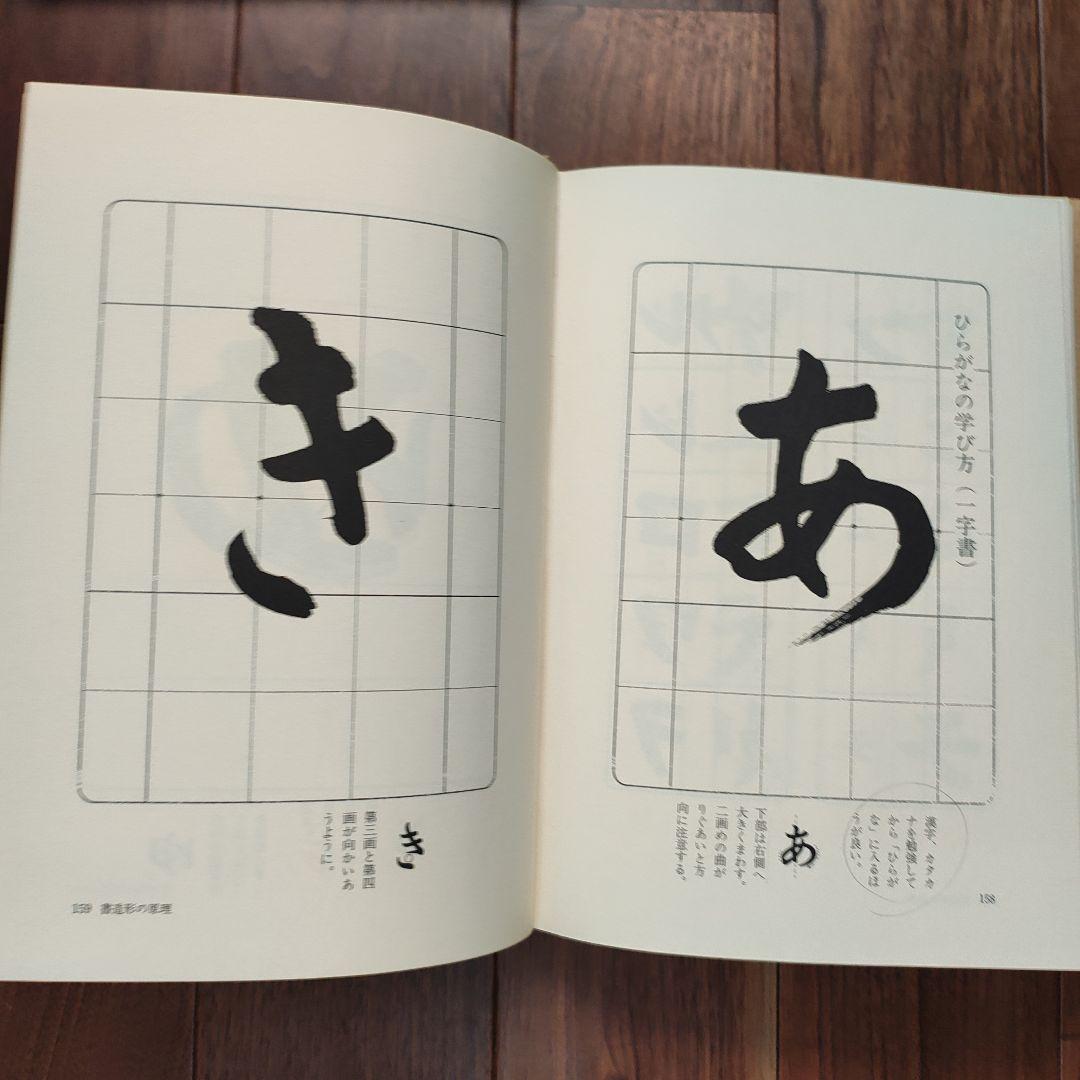 ひらがなの学び方（一字書）
あ
漢字、カタカ
ナを勉強して
から「ひらが
な」に入るほ
うが良い。
あ
下部は右側へ
大きくまわす。
二画めの曲が
りぐあいと方
向に注意する。
158
き
き
第三画と第四
画が向かいあ
うように。
159 書造形の原理